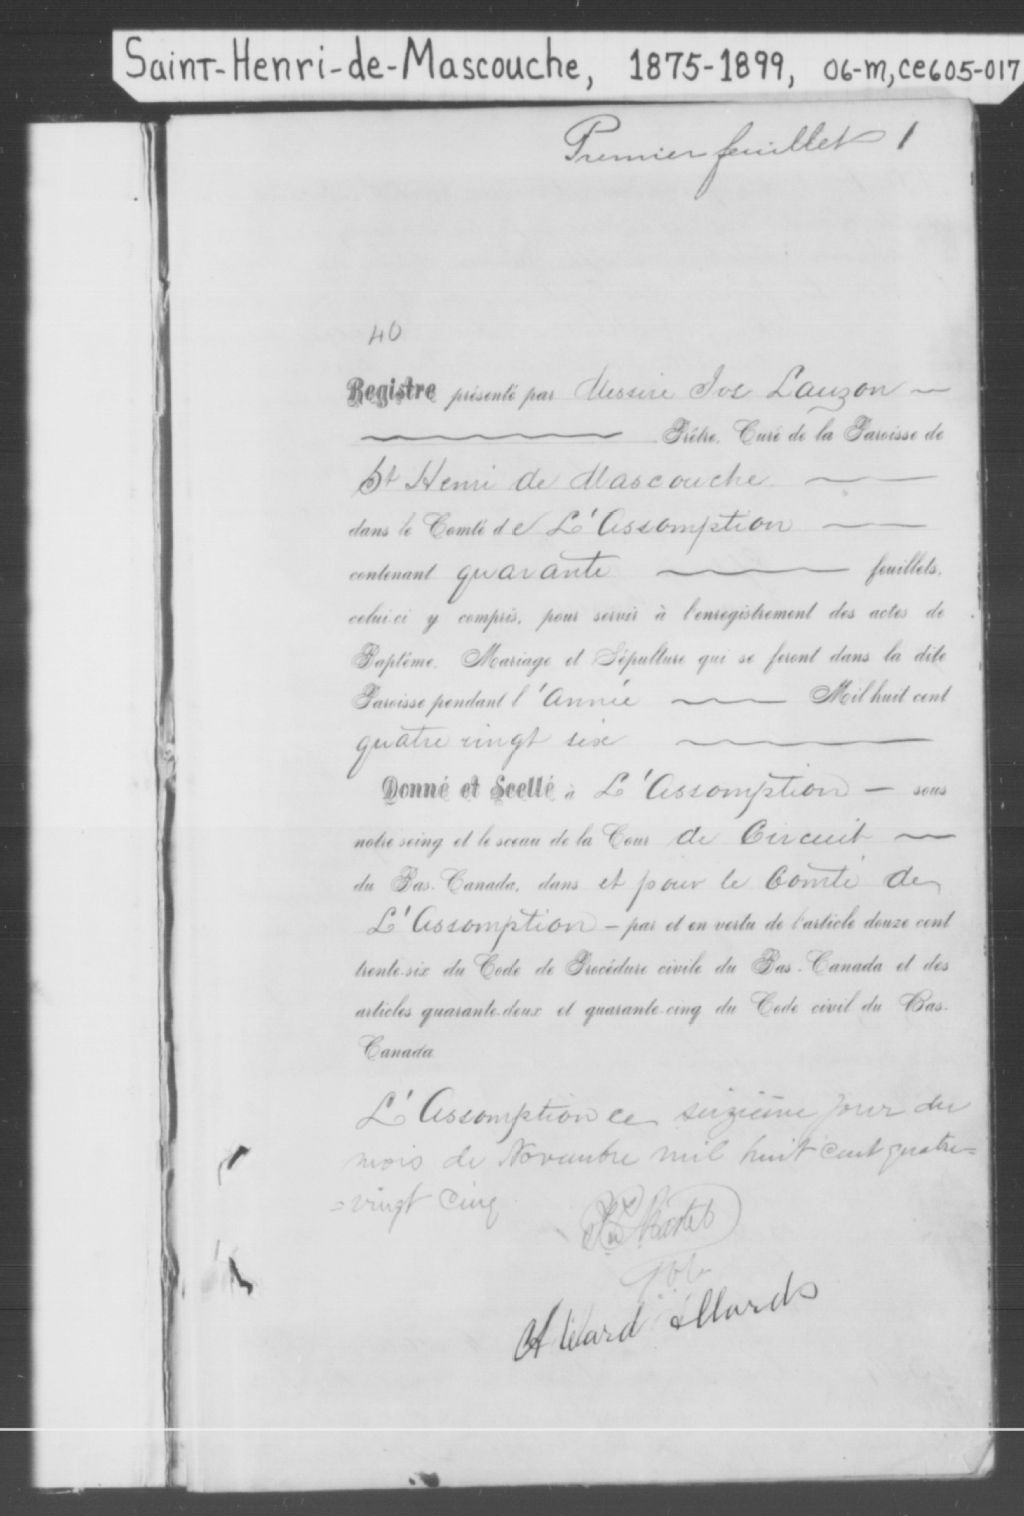 Saint-Henri-de-Mascouche, 1875-1899, 06-M, CE605-017
Premier feuillet 1
40
Registre présenté par Messire Jos Lauzon
Prêtre, Curé de la Paroisse de
St Henri de Mascouche
dans le Comté de L'Assomption
contenant quarante feuillets,
celui-ci y compris, pour servir à l'enregistrement des actes de
Baptême, Mariage et Sépulture qui se feront dans la dite
Paroisse pendant l'année Mil huit cent
quatre vingt six
Donné et Scellé à L'Assomption - sous
notre seing et le sceau de la Cour de Circuit
du Bas-Canada, dans et pour le Comté de
L'Assomption - par et en vertu de l'article douze cent
trente-six du Code de Procédure civile du Bas-Canada et des
articles quarante-deux et quarante-cinq du Code civil du Bas-
Canada
L'Assomption ce seizième jour du
mois de Novembre mil huit cent quatre=
=vingt cinq